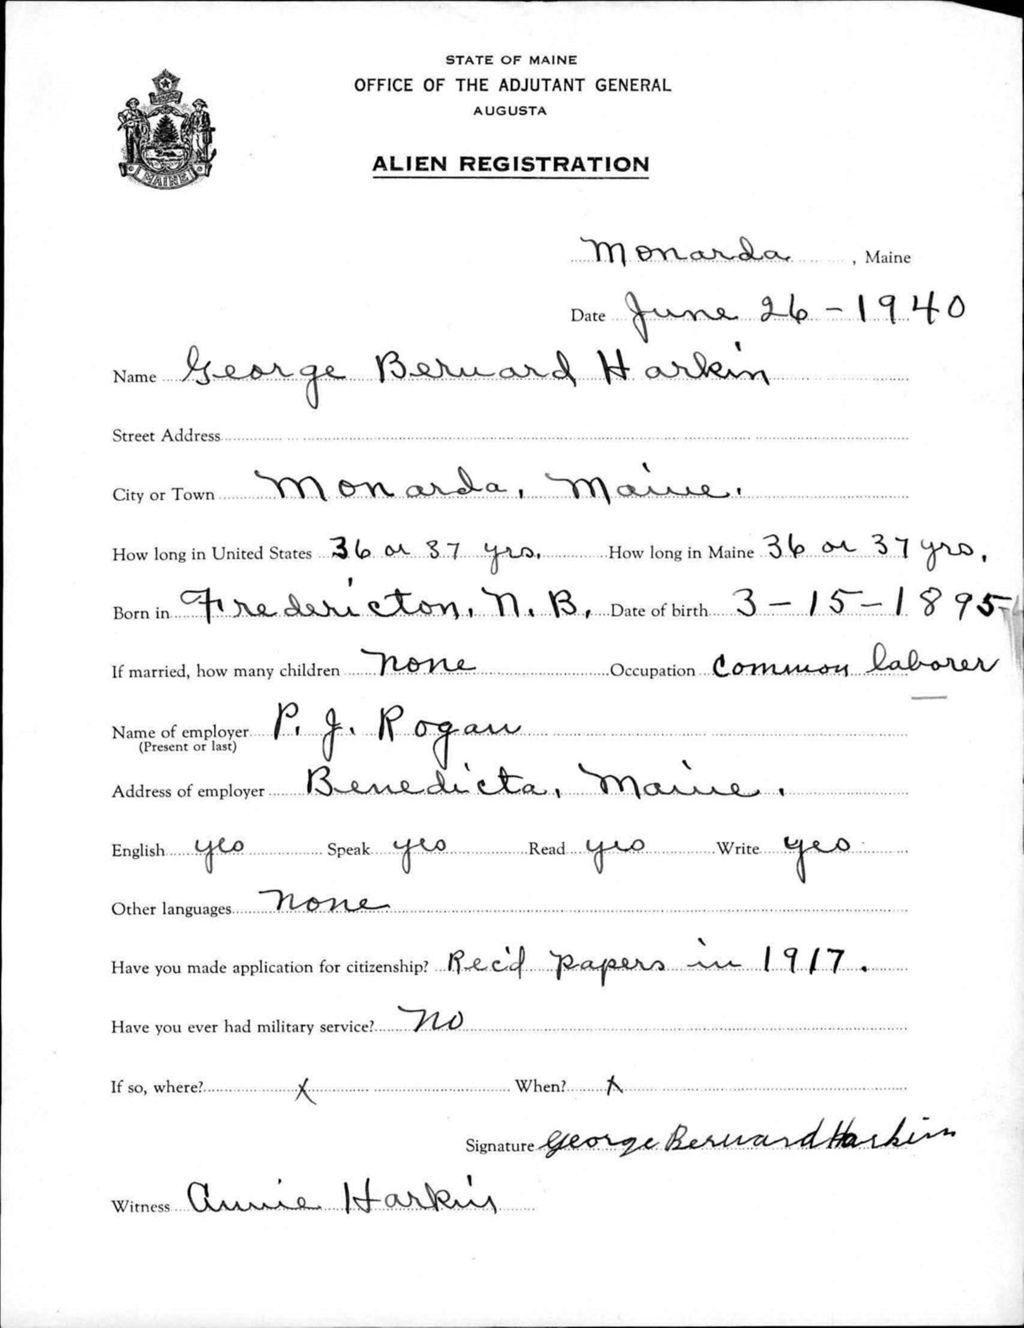 STATE OF MAINE
OFFICE OF THE ADJUTANT GENERAL
AUGUSTA
ALIEN REGISTRATION
MAINE
Monarda, Maine
Date June 26-1940
Name George Bernard Harkin
Street Address
City or Town Monarda, Maine.
How long in United States 36 or 37 yrs. How long in Maine 36 or 37 yrs.
Born in Fredericton, N. B. Date of birth 3-15-1895
If married, how many children none Occupation Common laborer
Name of employer P. J. Rogan
(Present or last)
Address of employer Benedicta, Maine.
English yes Speak yes Read yes Write yes
Other languages none
Have you made application for citizenship? Rec'd papers in 1917.
Have you ever had military service? No
If so, where? x When? x
Signature George Bernard Harkin
Witness Annie Harkin